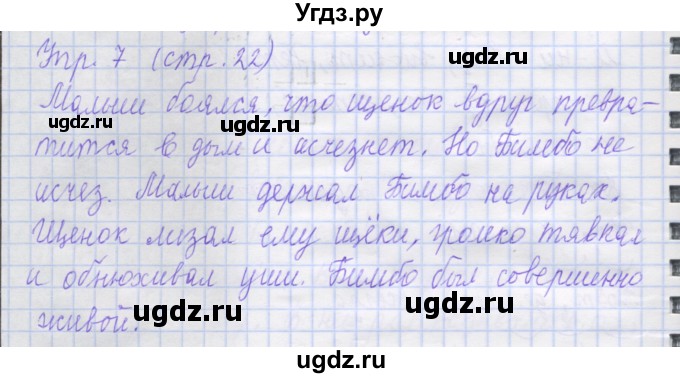 Угдз.ру
Упр. 7 (стр. 22)
ugdz.ru
Малыш боялся, что щенок вдруг превра-
ugdz.ru ugdz.ru
тится в дым и исчезнет. Но Бимбо не
исчез. Малыш держал Бимбо на руках.
ugdz.ru
Щенок лизал ему щёки, громко тявкал
и обнюхивал уши. Бимбо был совершенно
ugdz.ru ugdz.ru
живой.
ugdz.ru